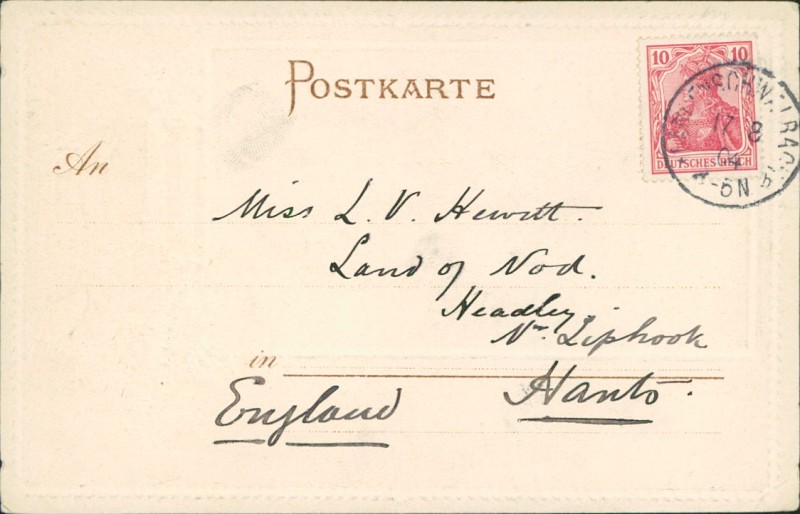 POSTKARTE
10 10
DEUTSCHES REICH
LANGENSCHWALBACH
17 8
04
4-5N
An
Miss L. V. Hewett.
Land of Nod.
Headley
Nr. Liphook
in
Hants.
England